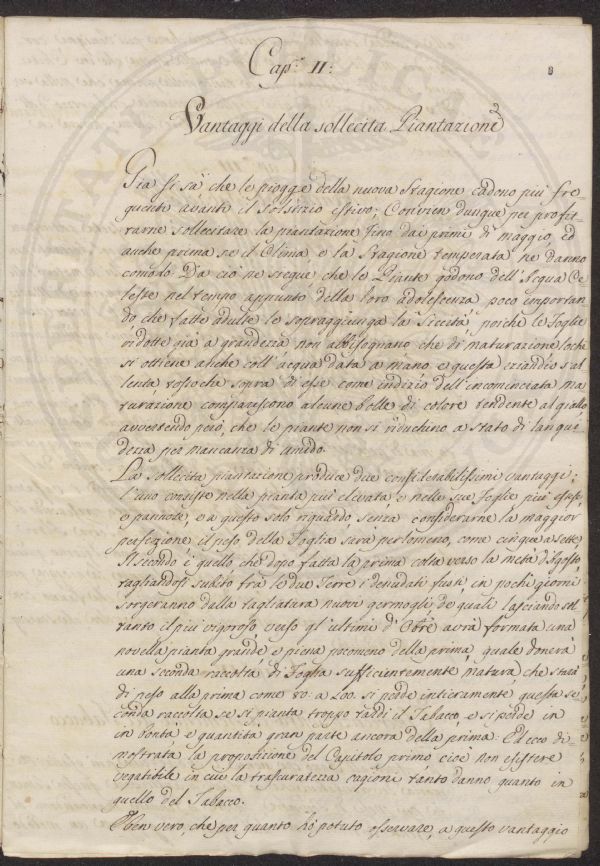 Cap.º II:
8
Vantaggi della sollecita Piantazione
Gia si sà che le piogge della nuova stagione cadono piu fre-
quenti avanti il solstizio estivo; Convien dunque per profit-
tarne sollecitare la piantazione fino dai primi di maggio, ed
anche prima se il Clima, e la Stagione temperata ne danno
comodo. Da ciò ne siegue che le Piante godono dell'Acqua Ce-
leste nel tempo appunto della loro adolescenza, poco importan-
do che fatte adulte le sopraggiunga la siccità, poiche le Foglie
ridotte già a grandezza non abbisognano che di maturazione loche
si ottiene anche coll'acqua data a mano, e questa eziandio s'al-
lenta tostoche sopra di esse come indizio dell'incominciata ma-
turazione compariscono alcune bolle di colore tendente al giallo
avvertendo però, che le piante non si riduchino a stato di langui-
dezza per mancanza di umido.
La sollecita piantazione produce due considerabilissimi vantaggi:
l'uno consiste nella pianta piu elevata e nelle sue foglie piu spesse
e pannose, e a questo solo riguardo senza considerarne la maggior
perfezione il peso della Foglia sarà perlomeno, come cinque a sette
Il secondo è quello, che dopo fatta la prima colta verso la metà d'Agosto,
tagliandosi subito trà le due Terre i denudati fusti, in pochi giorni
sorgeranno dalla tagliatura nuovi germogli, de quali lasciando sol-
tanto il piu vigoroso, verso gl'ultimi d'Obre avrà formata una
novella pianta grande, e piena pocomeno della prima, quale donerà
una seconda raccolta di Foglia sufficientemente matura, che starà
di peso alla prima come 80. a 200. si perde intieramente questa se-
conda raccolta se si pianta troppo tardi il Tabacco, e si perde in
in bontà, e quantità gran parte ancora della prima: Ed ecco di-
mostrata la proposizione del Capitolo primo cioè non esistere
vegatibile in cui la trascuratezza cagioni tanto danno quanto in
quello del Tabacco.
Eben vero, che per quanto hò potuto osservare, a questo vantaggio